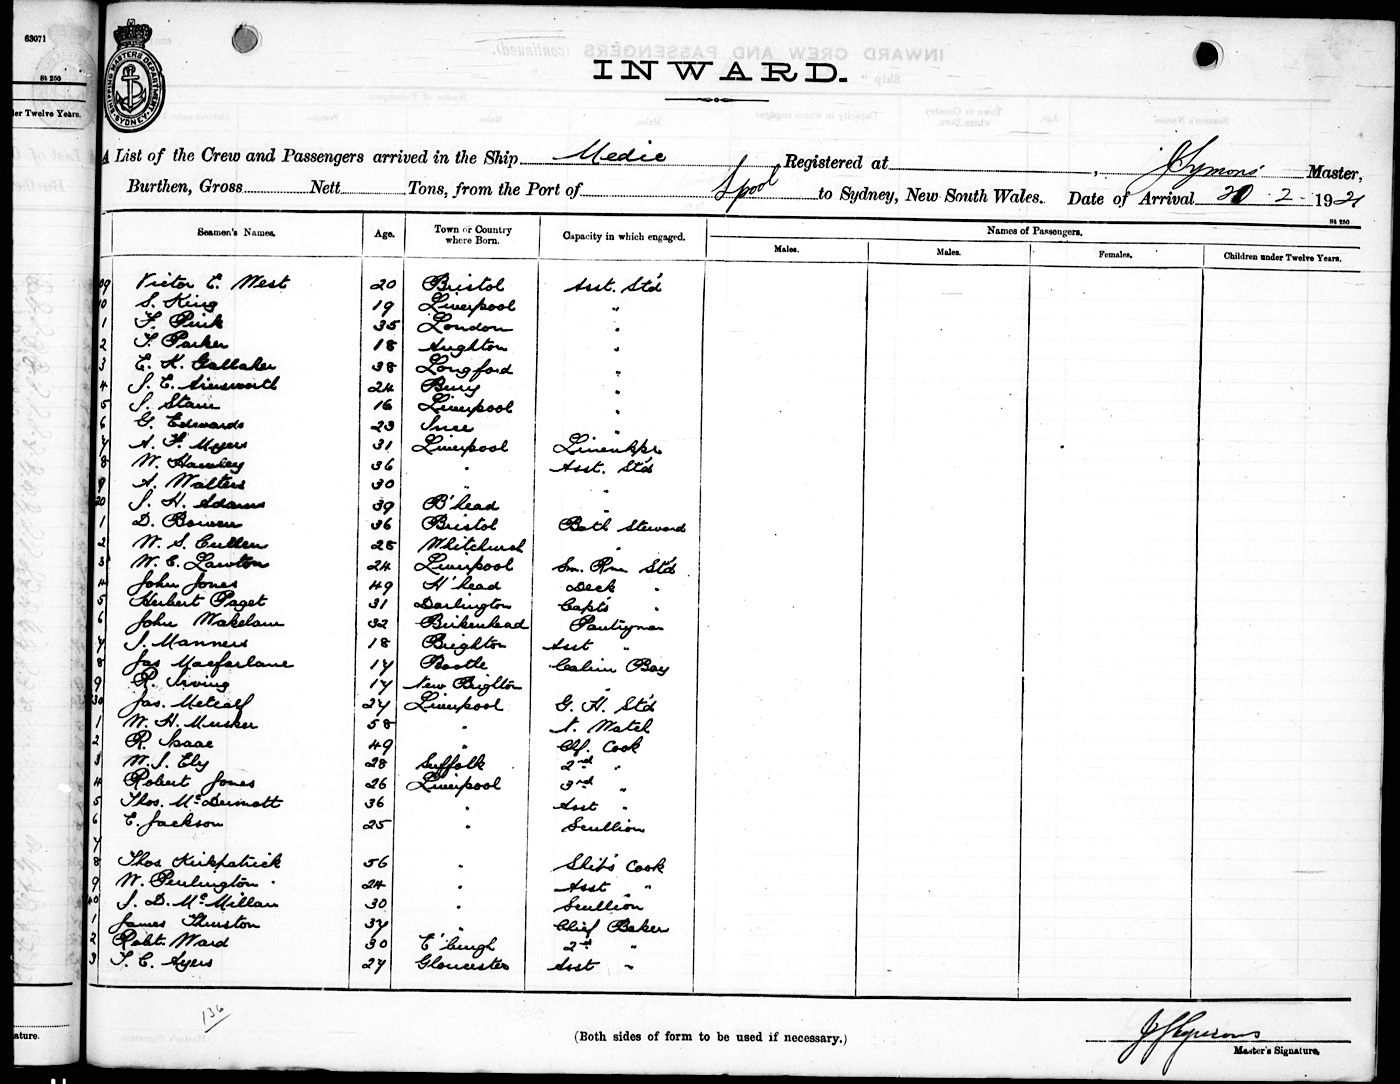 63071
St 250
der Twelve Years.
SHIPPING MASTERS DEPARTMENT SYDNEY
INWARD.
A List of the Crew and Passengers arrived in the Ship Medic Registered at , J Symons Master,
Burthen, Gross Nett Tons, from the Port of Lpool to Sydney, New South Wales. Date of Arrival 20 . 2 - 1921
St 250
Seamen's Names. Age. Town or Country where Born. Capacity in which engaged. Names of Passengers.
Males. Males. Females. Children under Twelve Years.
09 Victor E. West 20 Bristol Asst. Std
10 S. King 19 Liverpool "
1 F. Pink 35 London "
2 T. Parker 18 Aughton "
3 E. K. Gallaher 38 Longford "
4 J. E. Ainsworth 24 Bury "
5 J. Stam 16 Liverpool "
6 G. Edwards 23 Ince "
7 A. F. Myers 31 Liverpool Linenkpr
8 W. Hawley 36 " Asst. Std
9 A. Walters 30 " "
20 J. H. Adams 39 B'head "
1 D. Bowen 36 Bristol Bath Steward
2 W. S. Cullen 28 Whitchurch "
3 W. E. Lawton 24 Liverpool Sm. Rm Std
4 John Jones 49 H'head Deck "
5 Herbert Paget 31 Darlington Capt's "
6 John Wakelam 32 Birkenhead Pantryman
7 J. Manners 18 Brighton Asst "
8 Jas Macfarlane 17 Bootle Cabin Boy
9 R. Irving 17 New Brighton "
30 Jas. Metcalf 27 Liverpool G. H. Std
1 W. H. Musker 58 " N. Watch
2 R. Isaac 49 " Chf. Cook
3 W. J. Ely 28 Suffolk 2nd "
4 Robert Jones 26 Liverpool 3rd "
5 Thos. McDermott 36 " Asst "
6 E. Jackson 25 " Scullion
7
8 Thos Kirkpatrick 56 " Ship's Cook
9 W. Penlington 24 " Asst "
40 J. D. McMillan 30 " Scullion
1 James Thurston 37 " Chief Baker
2 Robt. Ward 30 E'burgh 2nd "
3 T. C. Ayers 27 Gloucester Asst "
136
(Both sides of form to be used if necessary.)
J Symons
Master's Signature.
ature.